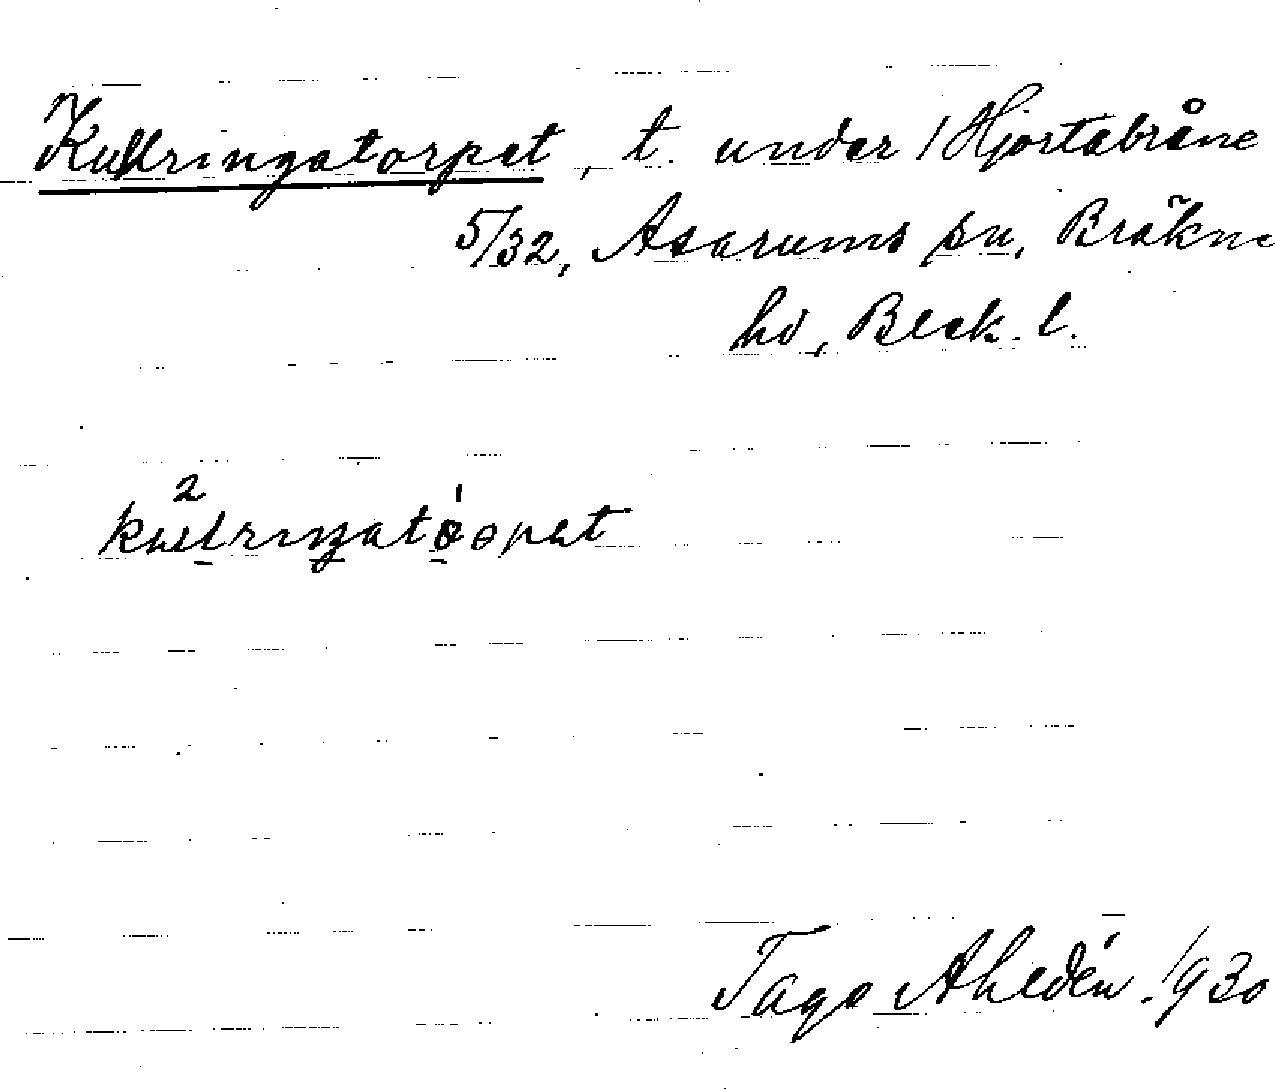 Kullringatorpet, t. under 1 Hjortabråne
5/32, Asarums sn, Bräkne
hd, Blek. l.
2
kullringatorpet
Tage Ahldén. 1930